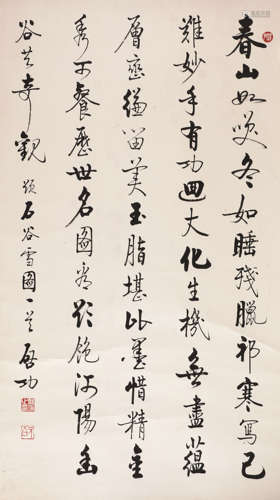 春山如笑冬如睡殘臘祁寒寫已
難妙手有功迴大化生機無盡蘊
層巒縑留美玉脂堪比墨惜精金
秀可餐歷世名圖飽河陽幽
谷共奇觀 題石谷雪圖一首 啟功